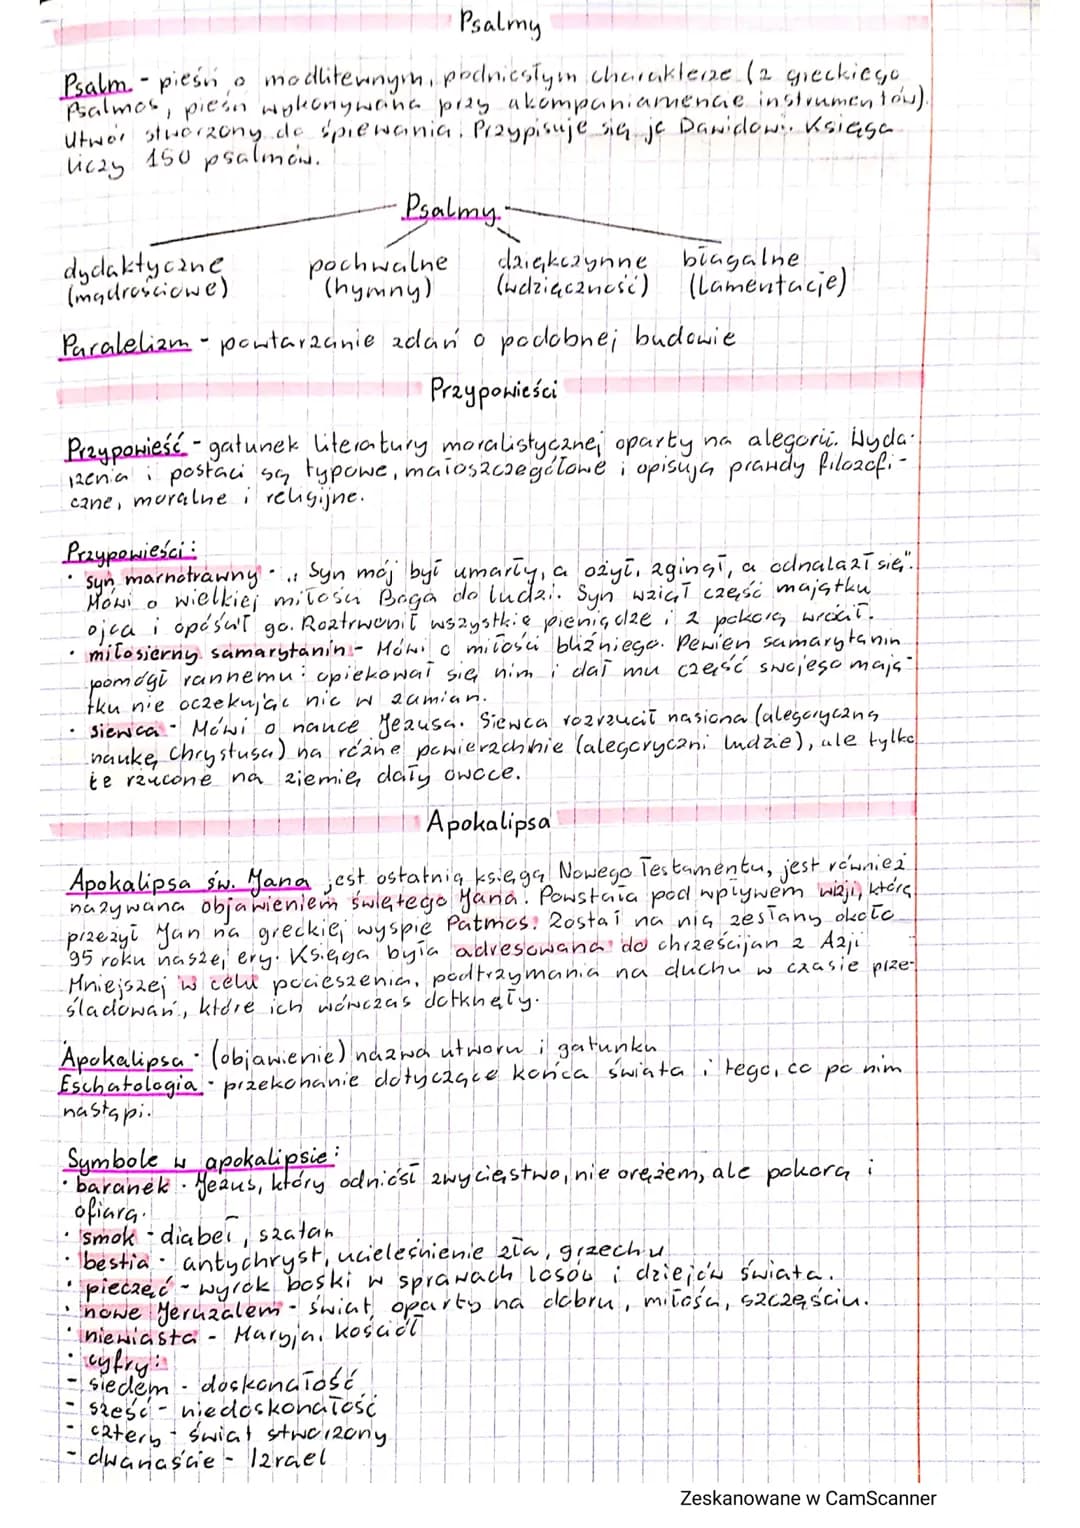 Psalmy
Psalm - pieśń o modlitewnym, podniosłym charakterze (z greckiego
Psalmos, pieśń wykonywana przy akompaniamencie instrumentów).
Utwór stworzony do śpiewania. Przypisuje się je Dawidowi. Księga
liczy 150 psalmów.
Psalmy
dydaktyczne pochwalne dziękczynne błagalne
(mądrościowe) (hymny) (wdzięczność) (Lamentacje)
Paralelizm - powtarzanie zdań o podobnej budowie
Przypowieści
Przypowieść - gatunek literatury moralistycznej oparty na alegorii. Wyda-
rzenia i postaci są typowe, małoszczegółowe i opisują prawdy filozofi-
czne, moralne i religijne.
Przypowieści:
• syn marnotrawny - „Syn mój był umarły, a ożył, zginął, a odnalazł się".
Mówi o wielkiej miłości Boga do ludzi. Syn wziął część majątku
ojca i opóścił go. Roztrwonił wszystkie pieniądze i z pokorą wrócił.
• miłosierny samarytanin - Mówi o miłości bliźniego. Pewien samarytanin
pomógł rannemu: opiekował się nim i dał mu część swojego mają-
tku nie oczekując nic w zamian.
• siewca - Mówi o nauce Jezusa. Siewca rozrzucił nasiona (alegoryczną
naukę Chrystusa) na różne powierzchnie (alegoryczni ludzie), ale tylko
te rzucone na ziemię dały owoce.
Apokalipsa
Apokalipsa św. Jana jest ostatnią księgą Nowego Testamentu, jest również
nazywana objawieniem świętego Jana. Powstała pod wpływem wizji, którą
przeżył Jan na greckiej wyspie Patmos. Został na nią zesłany około
95 roku naszej ery. Księga była adresowana do chrześcijan z Azji
Mniejszej w celu pocieszenia, podtrzymania na duchu w czasie prze-
śladowań, które ich wówczas dotknęły.
Apokalipsa - (objawienie) nazwa utworu i gatunku
Eschatologia - przekonanie dotyczące końca świata i tego, co po nim
nastąpi.
Symbole w apokalipsie:
• baranek - Jezus, który odniósł zwycięstwo, nie orężem, ale pokorą i
ofiarą.
• smok - diabeł, szatan
• bestia - antychryst, ucieleśnienie zła, grzechu
• pieczęć - wyrok boski w sprawach losów i dziejów świata.
• nowe Jeruzalem - świat oparty na dobru, miłości, szczęściu.
• niewiasta - Maryja, kościół
• cyfry:
- siedem - doskonałość
- sześć - niedoskonałość
- cztery - świat stworzony
- dwanaście - Izrael
Zeskanowane w CamScanner